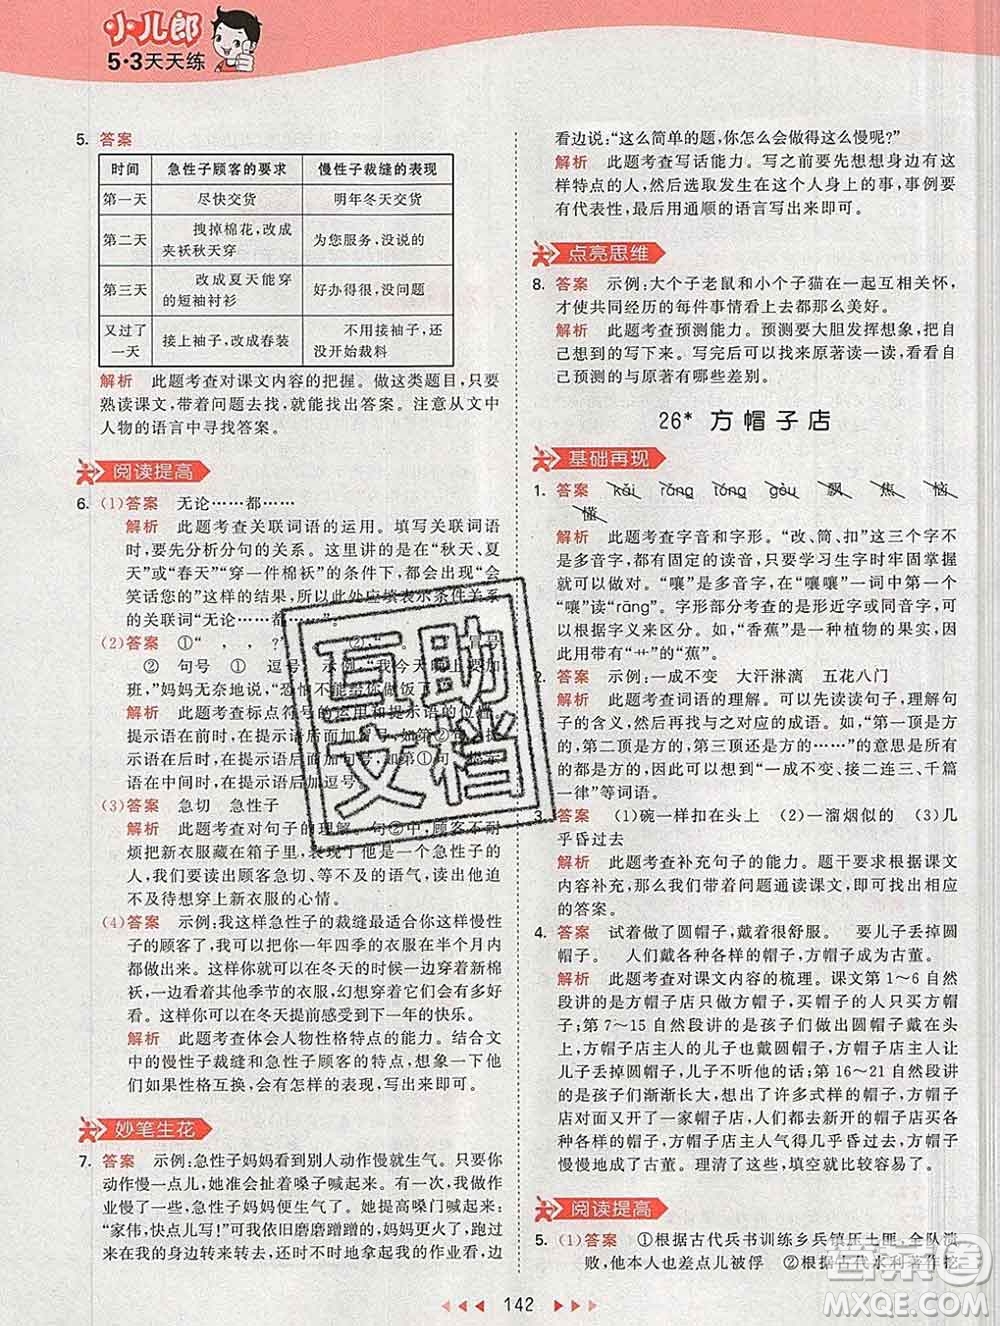 小儿郎
5·3天天练
5. 答案
时间 急性子顾客的要求 慢性子裁缝的表现
第一天 尽快交货 明年冬天交货
第二天 拽掉棉花,改成夹袄秋天穿 为您服务,没说的
第三天 改成夏天能穿的短袖衬衫 好办得很,没问题
又过了一天 接上袖子,改成春装 不用接袖子,因为还没开始裁料
解析 此题考查对课文内容的把握。做这类题目,只要
熟读课文,带着问题去找,就能找出答案。注意从文中
人物的语言中寻找答案。
阅读提高
6. (1)答案 无论……都……
解析 此题考查关联词语的运用。填写关联词语
时,要先分析分句的关系。这里讲的是“秋天、夏
天”或“春天”“穿一件棉袄”和“人家都会
笑话您的”这样的结果,所以此处应填表示条件关系
的关联词“无论……都……”。
(2)答案 ①“ , ,?”
② 句号 ① 逗号 示例:“我今天晚上要加
班,”妈妈无奈地说,“恐怕不能给你做饭了。”
解析 此题考查标点符号的运用和提示语的位置。
提示语在前时,提示语后面加冒号,如第②句;提示
语在后时,在提示语后加句号,如第①句;提示
语在中间时,在提示语后加逗号。
(3)答案 急切 急性子
解析 此题考查对句子的理解。句②中,顾客不耐
烦把新衣服藏在箱子里,说明他是一个急性子的
人。可以读出顾客急切、焦急的语气,可以读出他
想早日穿上新衣服的心情。
(4)答案 示例:我这样急性子的裁缝最适合你这样慢性
子的顾客了,我可以让你一年四季的衣服在半个月内
都做出来。这样你就可以在冬天的时候检查新棉
袄,没事的时候还可以把其他季节的衣服,也多拿出来看
看。这样你就可以在冬天提前感受到下一年的快乐。
解析 此题考查体会人物性格特点的能力。结合文
中的慢性子裁缝和急性子顾客的特点,想象一下他
们如果性格互换,会有怎样的表现,写下来即可。
妙笔生花
7. 答案 示例:急性子妈妈看到别人动作慢就生气。只要你
动作慢一点儿,她准会扯着嗓子喊起来。有一次,我做作
业慢了一些,急性子妈妈便生气了。她提高嗓门喊起来:
“家伟,快点儿写!”可我依旧磨磨蹭蹭的,妈妈立刻跑过
来在我的身边转来转去,她一会儿看看我的作业看,边
看边说:“这么简单的题,你怎么会做得这么慢呢?”
解析 此题考查写话能力。要先想想身边有没有这
样特点的人,然后选取发生在这个人身上的事,事例要
有代表性,最后用通顺的语言写出来即可。
点亮思维
8. 答案 示例:大个子老鼠和小个子猫在一起互相关怀,
才使共同经历的每件事情看上去都那么美好。
解析 此题考查预测能力。预测要大胆发挥想象,把自
己想到的写下来。写完后可以找来原著读一读,看看自
己预测的与原著有哪些差别。
26* 方帽子店
基础再现
1. 答案 kǎi rāng tóng gòu 飘 焦 恼
懂
解析 此题考查字音和字形。“改、筒、扣”这三个字不
是多音字,都有固定的读音,只要学习生字时牢固掌握
就可以做对。“嚷”是多音字,在“嚷嚷”一词中第一个
“嚷”读“rāng”。字形部分考查的是形近字或同音字,可
根据字义来区分。如,“香蕉”是一种植物的果实,因
此要用带有“艹”的“蕉”。
2. 答案 示例:一成不变 大汗淋漓 五花八门
解析 此题考查词语的理解。可以先读读句子,理解句
子的含义,然后再找与之对应的成语。如,“第一顶是方
的,第二顶是方的,第三顶是方的……”的意思是所有
的帽子都是方的,可以联想到“一成不变、接二连三、千篇
一律”等词语。
3. 答案 (1)碗一样扣在头上 (2)一溜烟似的 (3)几
乎昏过去
解析 此题考查补充句子的能力。题干要求根据课文
内容补充句子,那么我们带着问题通读课文,即可找到对应
的答案。
4. 答案 试着做了圆帽子,戴着很舒服。 要儿子丢掉圆
圆帽子。 人们戴各种各样的帽子,方帽子成了古董。
解析 此题考查对课文内容的梳理。课文第1~6自然
段讲的是方帽子店只卖方帽子,买帽子的人只买方帽
子;第7~15自然段讲的是孩子们做出圆帽子戴起来,
方帽子店主人的儿子也戴圆帽子,方帽子店主人要
儿子丢掉圆帽子,儿子不听他的话;第16~21自然段讲
的是孩子们渐渐长大,想出了许多式样的帽子,方帽子
店对面还开了一家帽子店,人们都去新开的帽子店买帽
子,方帽子店主人得知自己的儿子也在那里后几乎昏过去,方帽子
慢慢地成了古董。理清了这些,填空就比较容易了。
阅读提高
5. (1)答案 ①根据古代兵书训练乡兵镇压土匪,全队溃
败,他本人也差点儿被俘 ②根据古代水利著作挖
142
互助文档
答案圈
MXQE.COM